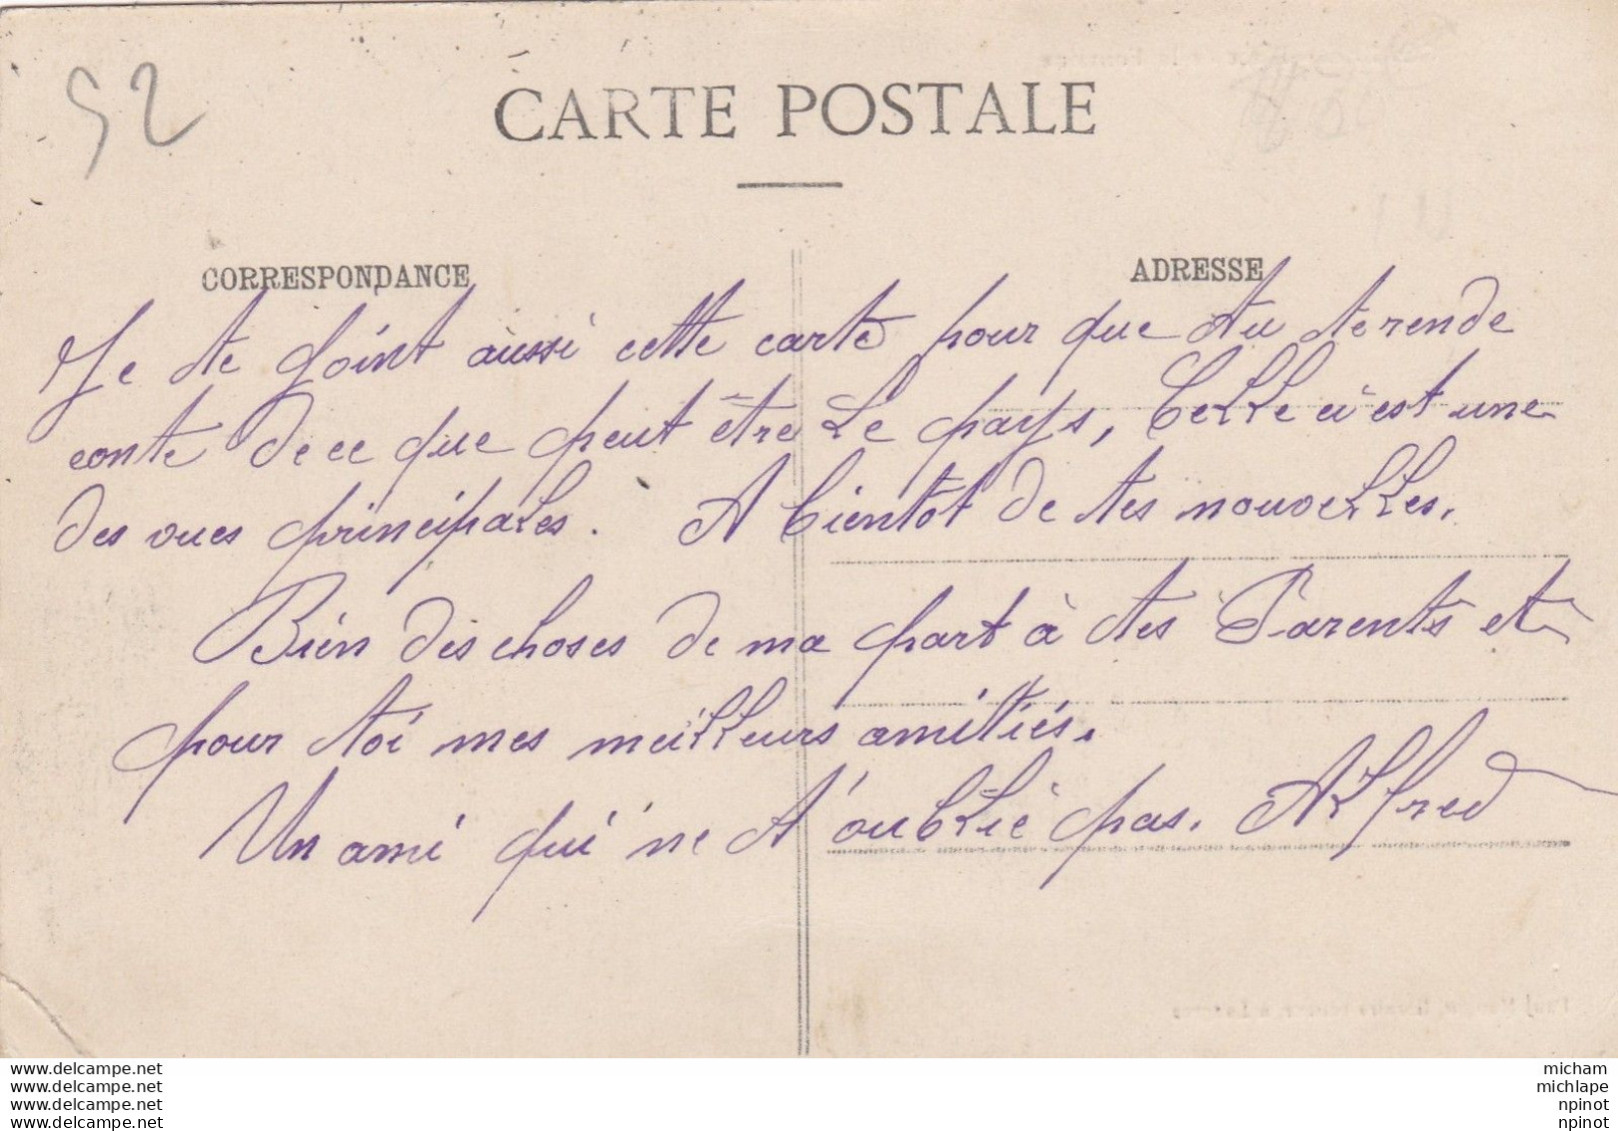 52
CARTE POSTALE
CORRESPONDANCE
ADRESSE
Je te joint aussi cette carte pour que tu te rende
conte de ce que peut être le pays, Celle ci est une
des vues principales. A bientôt de tes nouvelles.
Bien des choses de ma part à tes Parents et
pour toi mes meilleurs amitiés.
Un ami qui ne t'oublie pas. Alfred
www.delcampe.net
www.delcampe.net
www.delcampe.net
www.delcampe.net
micham
michlape
npinot
npinot